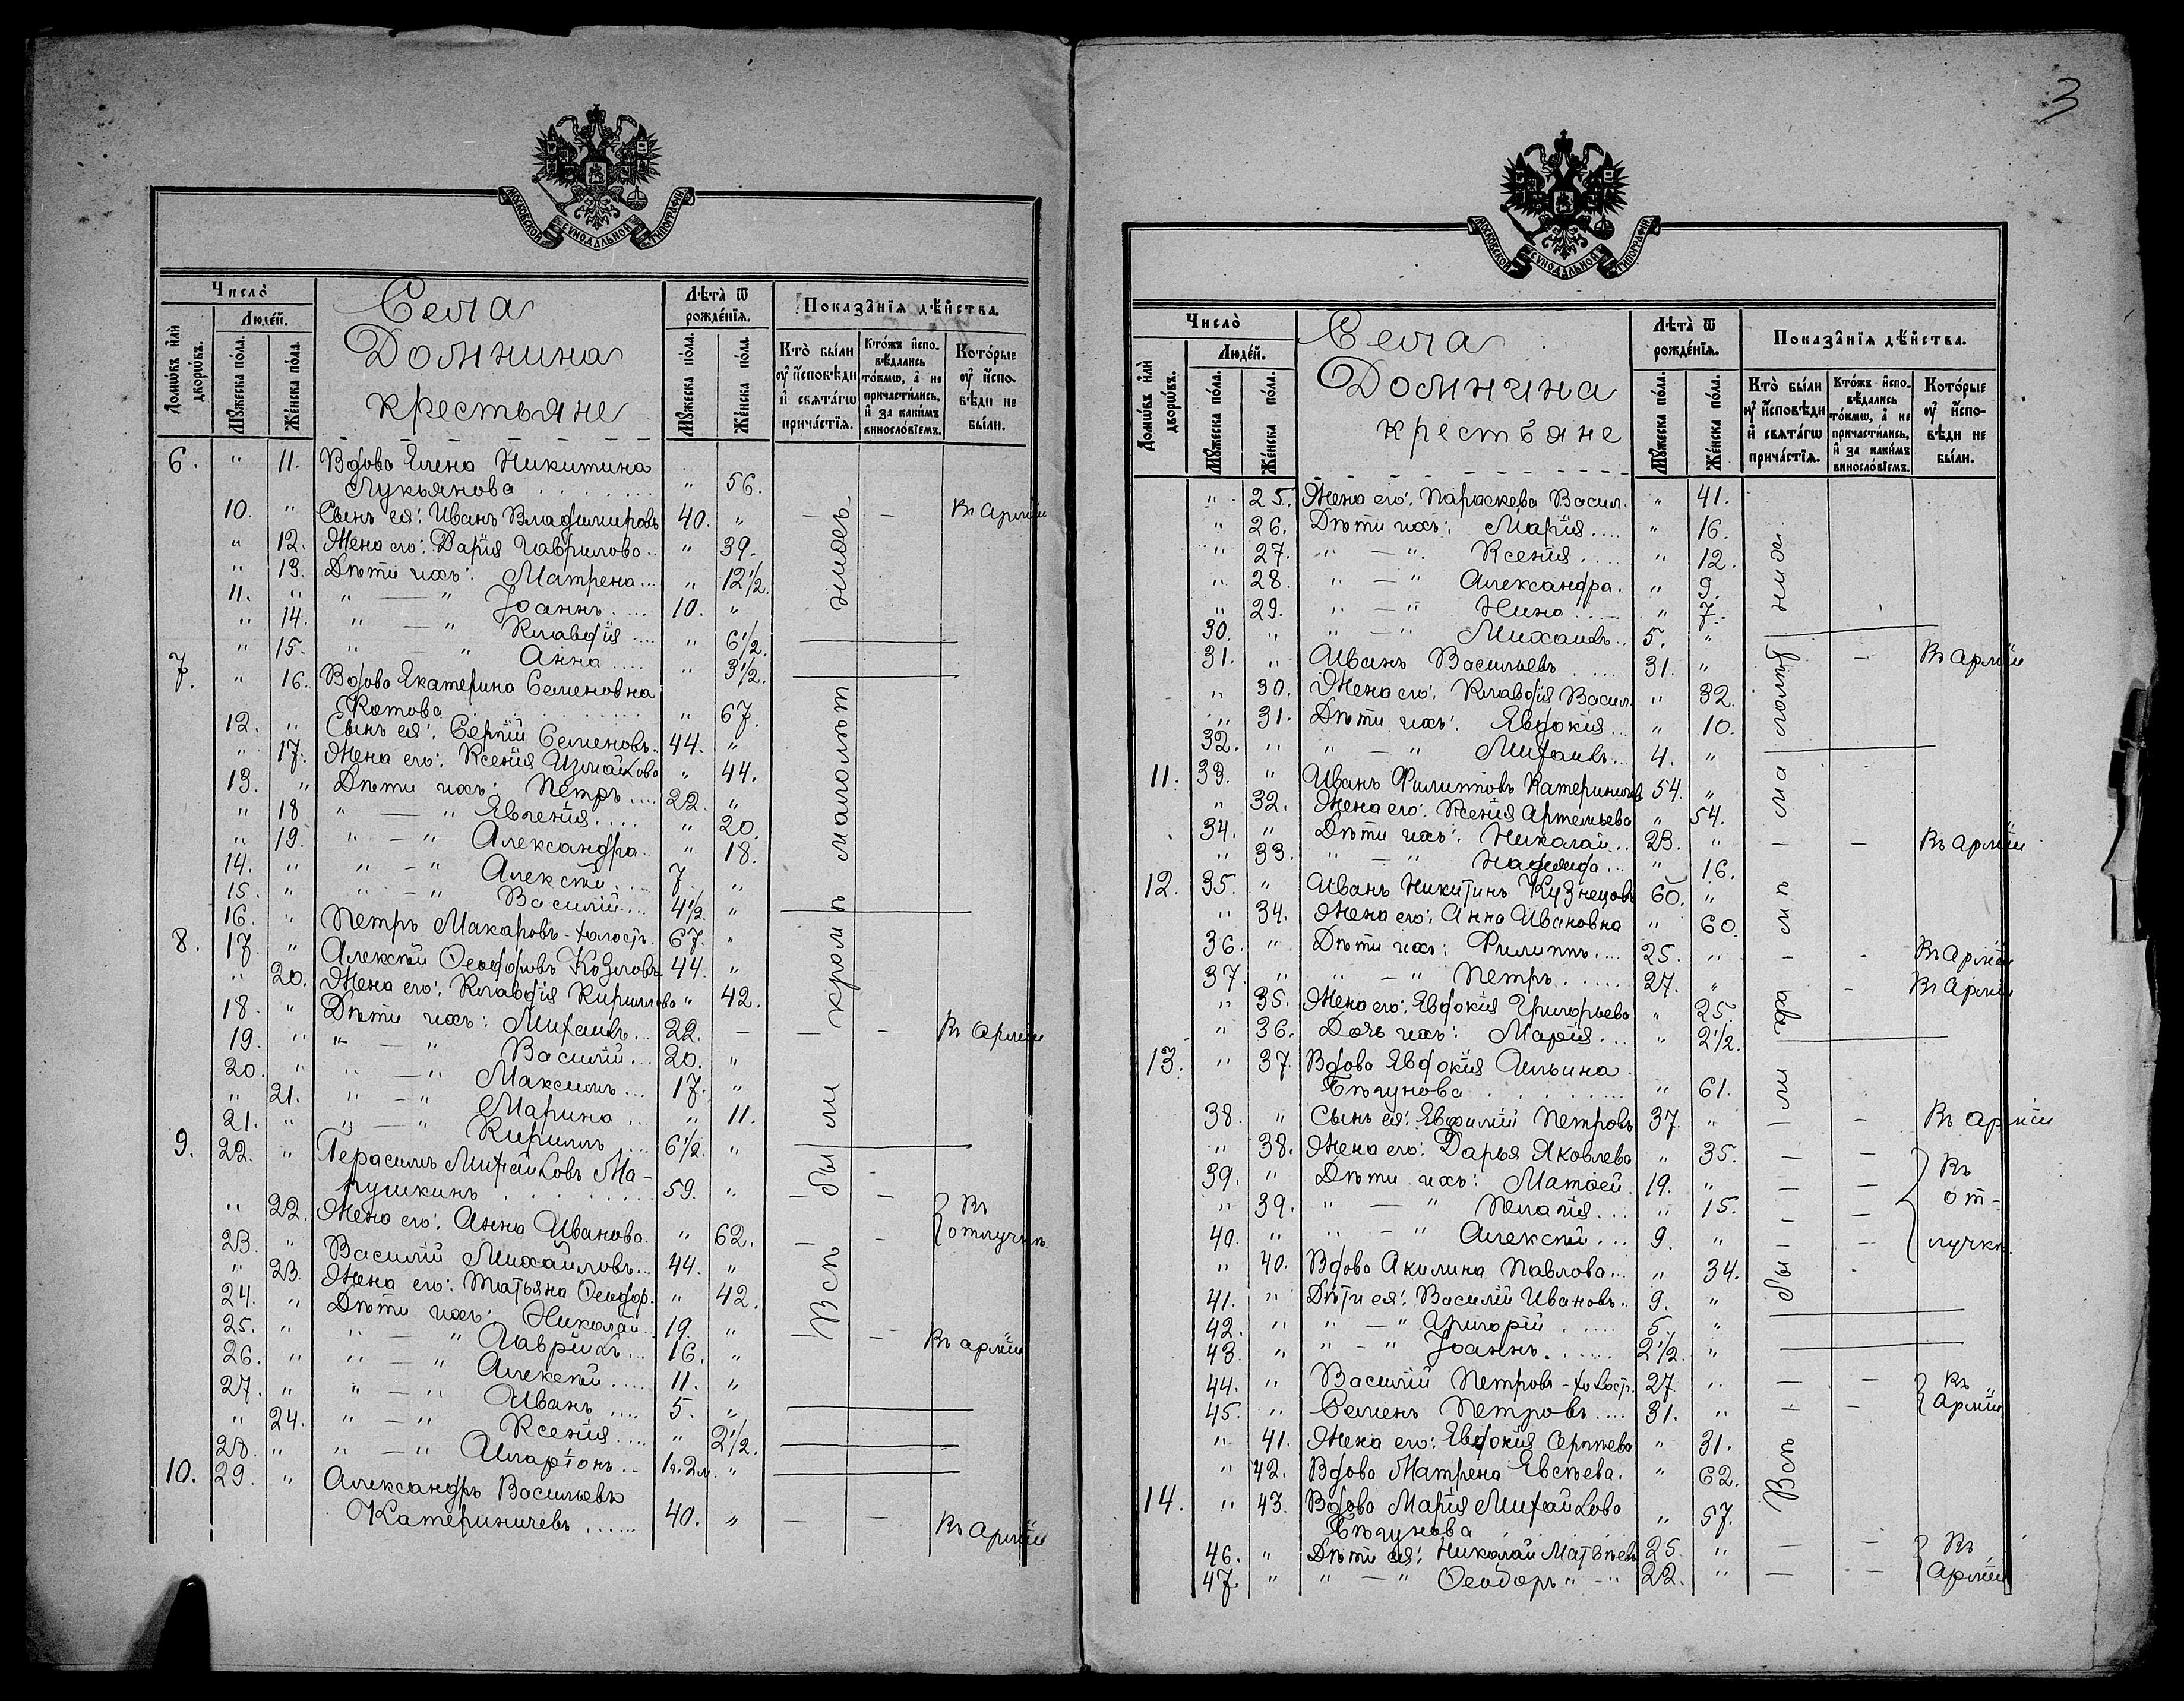 МОСКОВСКОЙ СѴНОДАЛЬНОЙ ТИПОГРАФІИ
Число̀
Села
Лѣта̀ ѿ рожде́нїѧ.
Показа̑нїѧ дѣ́йства.
Домѡ́въ и҆лѝ дворѡ́въ.
Люде́й.
Мꙋ́жеска по́ла.
Же́нска по́ла.
Домнина
крестьяне
Мꙋ́жеска по́ла.
Же́нска по́ла.
Кто̀ бы́ли ᲂу҆ и҆сповѣ́ди и҆ свѧта́гѡ прича́стїѧ.
Кто́жъ и҆сповѣ́дались то́кмѡ, а҆ не причасти́лись, и҆ за каки́мъ винослові́емъ.
Кото́рые ᲂу҆ и҆сповѣ́ди не бы́ли.
6. " 11. Вдова Елена Никитина
Лукьянова " 56.
10. " Сынъ ея: Иванъ Владимировъ 40. " — — Въ Арміи
" 12. Жена его: Дарія Гаврилова " 39.
" 13. Дѣти ихъ: Матрена " 12½.
11. " " — " Іоаннъ 10. "
" 14. " — " Клавдія " 6½.
" 15. " — " Анна " 3½.
7. " 16. Вдова Екатерина Семеновна
Котова " 67.
12. " Сынъ ея: Сергій Семеновъ 44. "
" 17. Жена его: Ксенія Измайлова " 44.
13. " Дѣти ихъ: Петръ 22. "
" 18 " — " Евгенія " 20.
" 19. " — " Александра " 18.
14. " " — " Алексѣй 7. "
15. " " — " Василій 4½. "
16. " Петръ Макаровъ - холостъ. 67. "
8. 17. " Алексѣй Ѳеодоровъ Козловъ 44. "
" 20. Жена его: Клавдія Кириллова " 42.
18. " Дѣти ихъ: Михаилъ 22. — — — Въ Арміи
19. " " — " Василій 20. "
20. " " — " Максимъ 17. "
" 21. " — " Марина " 11.
21. " " — " Кириллъ 6½. "
9. 22. " Герасимъ Михайловъ Ма-
пушкинъ 59. " — — Въ
" 22. Жена его: Анна Иванова. " 62. — — отлучкѣ
23. " Василій Михайловъ 44. "
" 23. Жена его: Татьяна Ѳеодор. " 42.
24. " Дѣти ихъ: Николай 19. " — — Въ арміи
25. " " — " Гаврiилъ 16. "
26. " " — " Алексѣй 11. "
27. " " — " Иванъ 5. "
" 24. " — " Ксенія " 2½.
28. " " — " Иларіонъ 1г. 2м. "
10. 29. " Александръ Васильевъ
Катериничевъ 40. " — — Въ Арміи
Всѣ были кромѣ малолѣтнихъ
3
МОСКОВСКОЙ СѴНОДАЛЬНОЙ ТИПОГРАФІИ
Число̀
Села
Лѣта̀ ѿ рожде́нїѧ.
Показа̑нїѧ дѣ́йства.
Домѡ́въ и҆лѝ дворѡ́въ.
Люде́й.
Мꙋ́жеска по́ла.
Же́нска по́ла.
Домнина
крестьяне
Мꙋ́жеска по́ла.
Же́нска по́ла.
Кто̀ бы́ли ᲂу҆ и҆сповѣ́ди и҆ свѧта́гѡ прича́стїѧ.
Кто́жъ и҆сповѣ́дались то́кмѡ, а҆ не причасти́лись, и҆ за каки́мъ винослові́емъ.
Кото́рые ᲂу҆ и҆сповѣ́ди не бы́ли.
" 25. Жена его: Параскева Васил. " 41.
" 26. Дѣти ихъ: Марія " 16.
" 27. " — " Ксенія " 12.
" 28. " — " Александра " 9.
" 29. " — " Нина " 7.
30. " " — " Михаилъ 5. "
31. " Иванъ Васильевъ 31. " — Въ арміи
" 30. Жена его: Клавдія Васил. " 32.
" 31. Дѣти ихъ: Евдокія " 10.
32. " " — " Михаилъ 4. "
11. 33. " Иванъ Филипповъ Катериничевъ 54. "
" 32. Жена его: Ксенія Артемьева " 54.
34. " Дѣти ихъ: Николай 23. " — — Въ арміи
" 33. " — " Надежда " 16.
12. 35. " Иванъ Никитинъ Кузнецовъ 60. "
" 34. Жена его: Анна Ивановна " 60.
36. " Дѣти ихъ: Филиппъ 25. " — — Въ Арміи
37. " " — " Петръ 27. " — Въ Арміи
" 35. Жена его: Евдокія Григорьева " 25.
" 36. Дочь ихъ: Марія " 2½.
13. " 37. Вдова Евдокія Ильина
Бѣгунова " 61.
38. " Сынъ ея: Евфимій Петровъ 37. " — — Въ арміи
" 38. Жена его: Дарья Яковлева " 35. — — Въ
39. " Дѣти ихъ: Матѳей 19. " — — от-
" 39. " — " Пелагія " 15. — —
40. " " — " Алексѣй 9. " — — лучкѣ
" 40. Вдова Акилина Павлова " 34.
41. " Дѣти ея: Василій Ивановъ 9. "
42. " " — " Григорій 5. "
43. " " — " Іоаннъ 2½. "
44. " Василій Петровъ - холост. 27. " — — Въ
45. " Семенъ Петровъ 31. " — — Арміи
" 41. Жена его: Евдокія Сергѣева " 31.
" 42. Вдова Матрена Евсѣева. " 62.
14. " 43. Вдова Марія Михайлова
Бѣгунова " 57.
46. " Дѣти ея: Николай Матвѣевъ 25. " — — Въ
47. " " — " Ѳеодоръ " — " 22. " — — Арміи